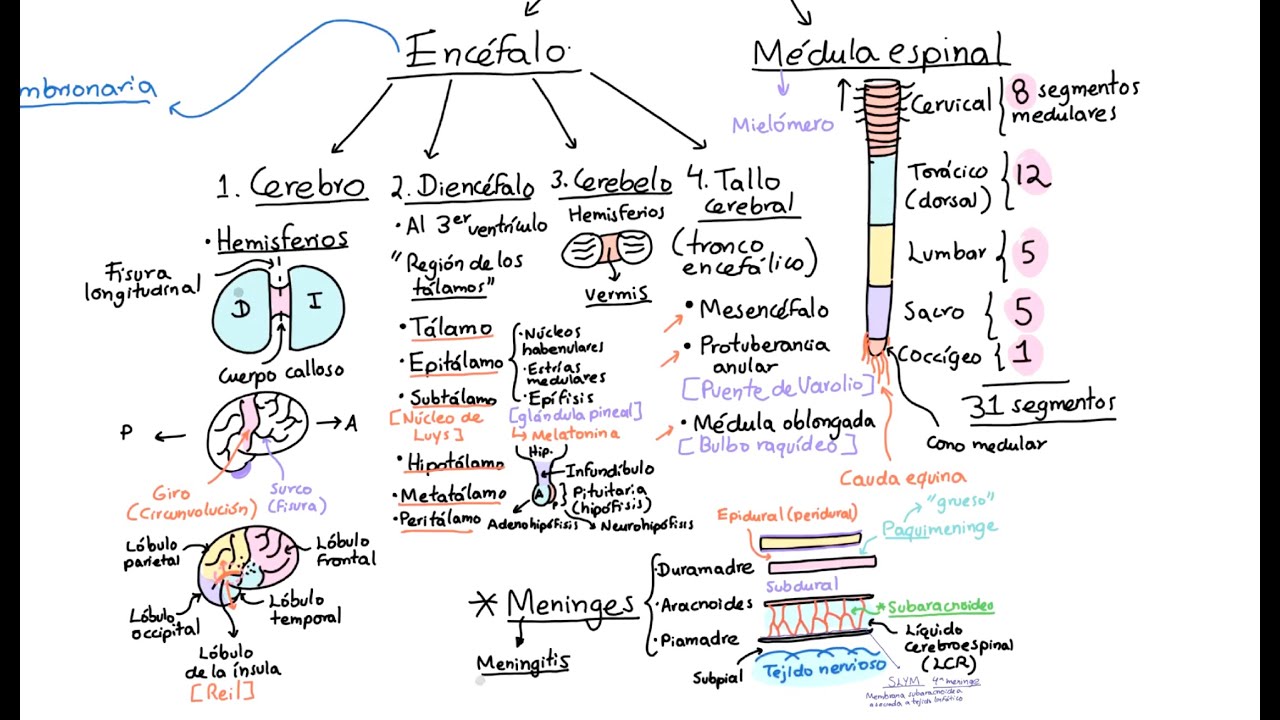 Encéfalo
Médula espinal
mbrionaria
Mielómero
Cervical
8 segmentos
medulares
Torácico
(dorsal)
12
Lumbar
5
Sacro
5
Coccígeo
1
31 segmentos
Cono medular
Cauda equina
1. Cerebro
• Hemisferios
Fisura
longitudinal
D
I
Cuerpo calloso
P
A
Giro
(Circunvolución)
Surco
(Fisura)
Lóbulo
parietal
Lóbulo
frontal
Lóbulo
occipital
Lóbulo
temporal
Lóbulo
de la ínsula
[Reil]
2. Diencéfalo
• Al 3er ventrículo
"Región de los
tálamos"
• Tálamo
• Epitálamo
• Núcleos
habenulares
• Estrías
medulares
• Epífisis
[glándula pineal]
↳ Melatonina
• Subtálamo
[Núcleo de
Luys]
• Hipotálamo
• Metatálamo
• Peritálamo
Hip.
Infundíbulo
A
P
Pituitaria
(hipófisis)
Adenohipófisis
Neurohipófisis
3. Cerebelo
Hemisferios
Vermis
4. Tallo
cerebral
(tronco
encefálico)
• Mesencéfalo
• Protuberancia
anular
[Puente de Varolio]
• Médula oblongada
[Bulbo raquídeo]
* Meninges
Meningitis
• Duramadre
• Aracnoides
• Piamadre
Epidural (peridural)
"grueso"
Paquimeninge
Subdural
*Subaracnoideo
Líquido
cerebroespinal
(LCR)
Subpial
Tejido nervioso
SLYM 4ª meninge
Membrana subaracnoidea
asociada a tejido linfático